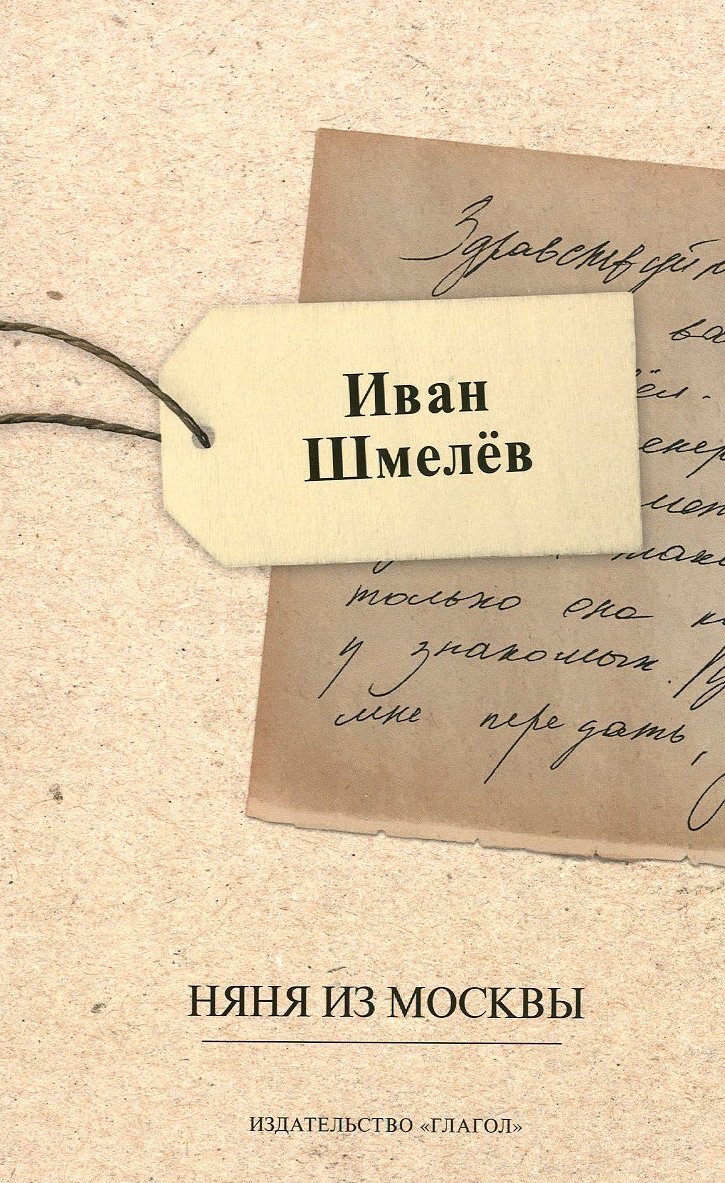 Здравствуй
ва
ёл.
Иван
Шмелёв
енер
мен
только она
у знакомых.
мне передать,
НЯНЯ ИЗ МОСКВЫ
ИЗДАТЕЛЬСТВО «ГЛАГОЛ»